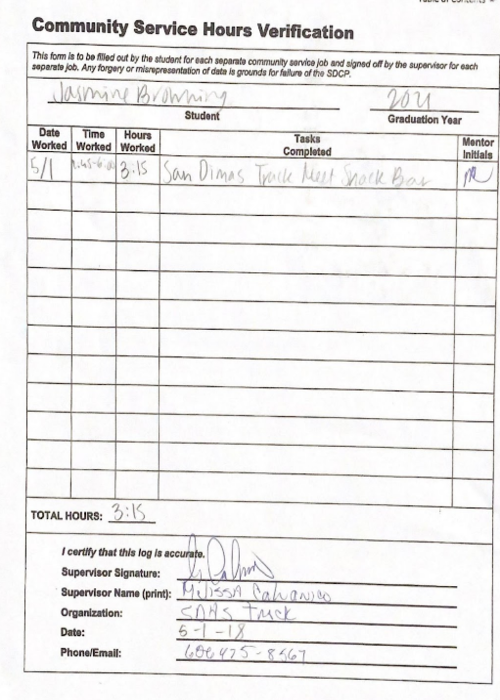 Community Service Hours Verification
This form is to be filled out by the student for each separate community service job and signed off by the supervisor for each
separate job. Any forgery or misrepresentation of data is grounds for failure of the SDCP.
Jasmine Browning 2021
Student Graduation Year
Date Worked Time Worked Hours Worked Tasks Completed Mentor Initials
5/1 3:15 San Dimas Track Meet Snack Bar
TOTAL HOURS: 3:15
I certify that this log is accurate.
Supervisor Signature:
Supervisor Name (print): Melissa
Organization: SDHS Track
Date: 5-1-18
Phone/Email: